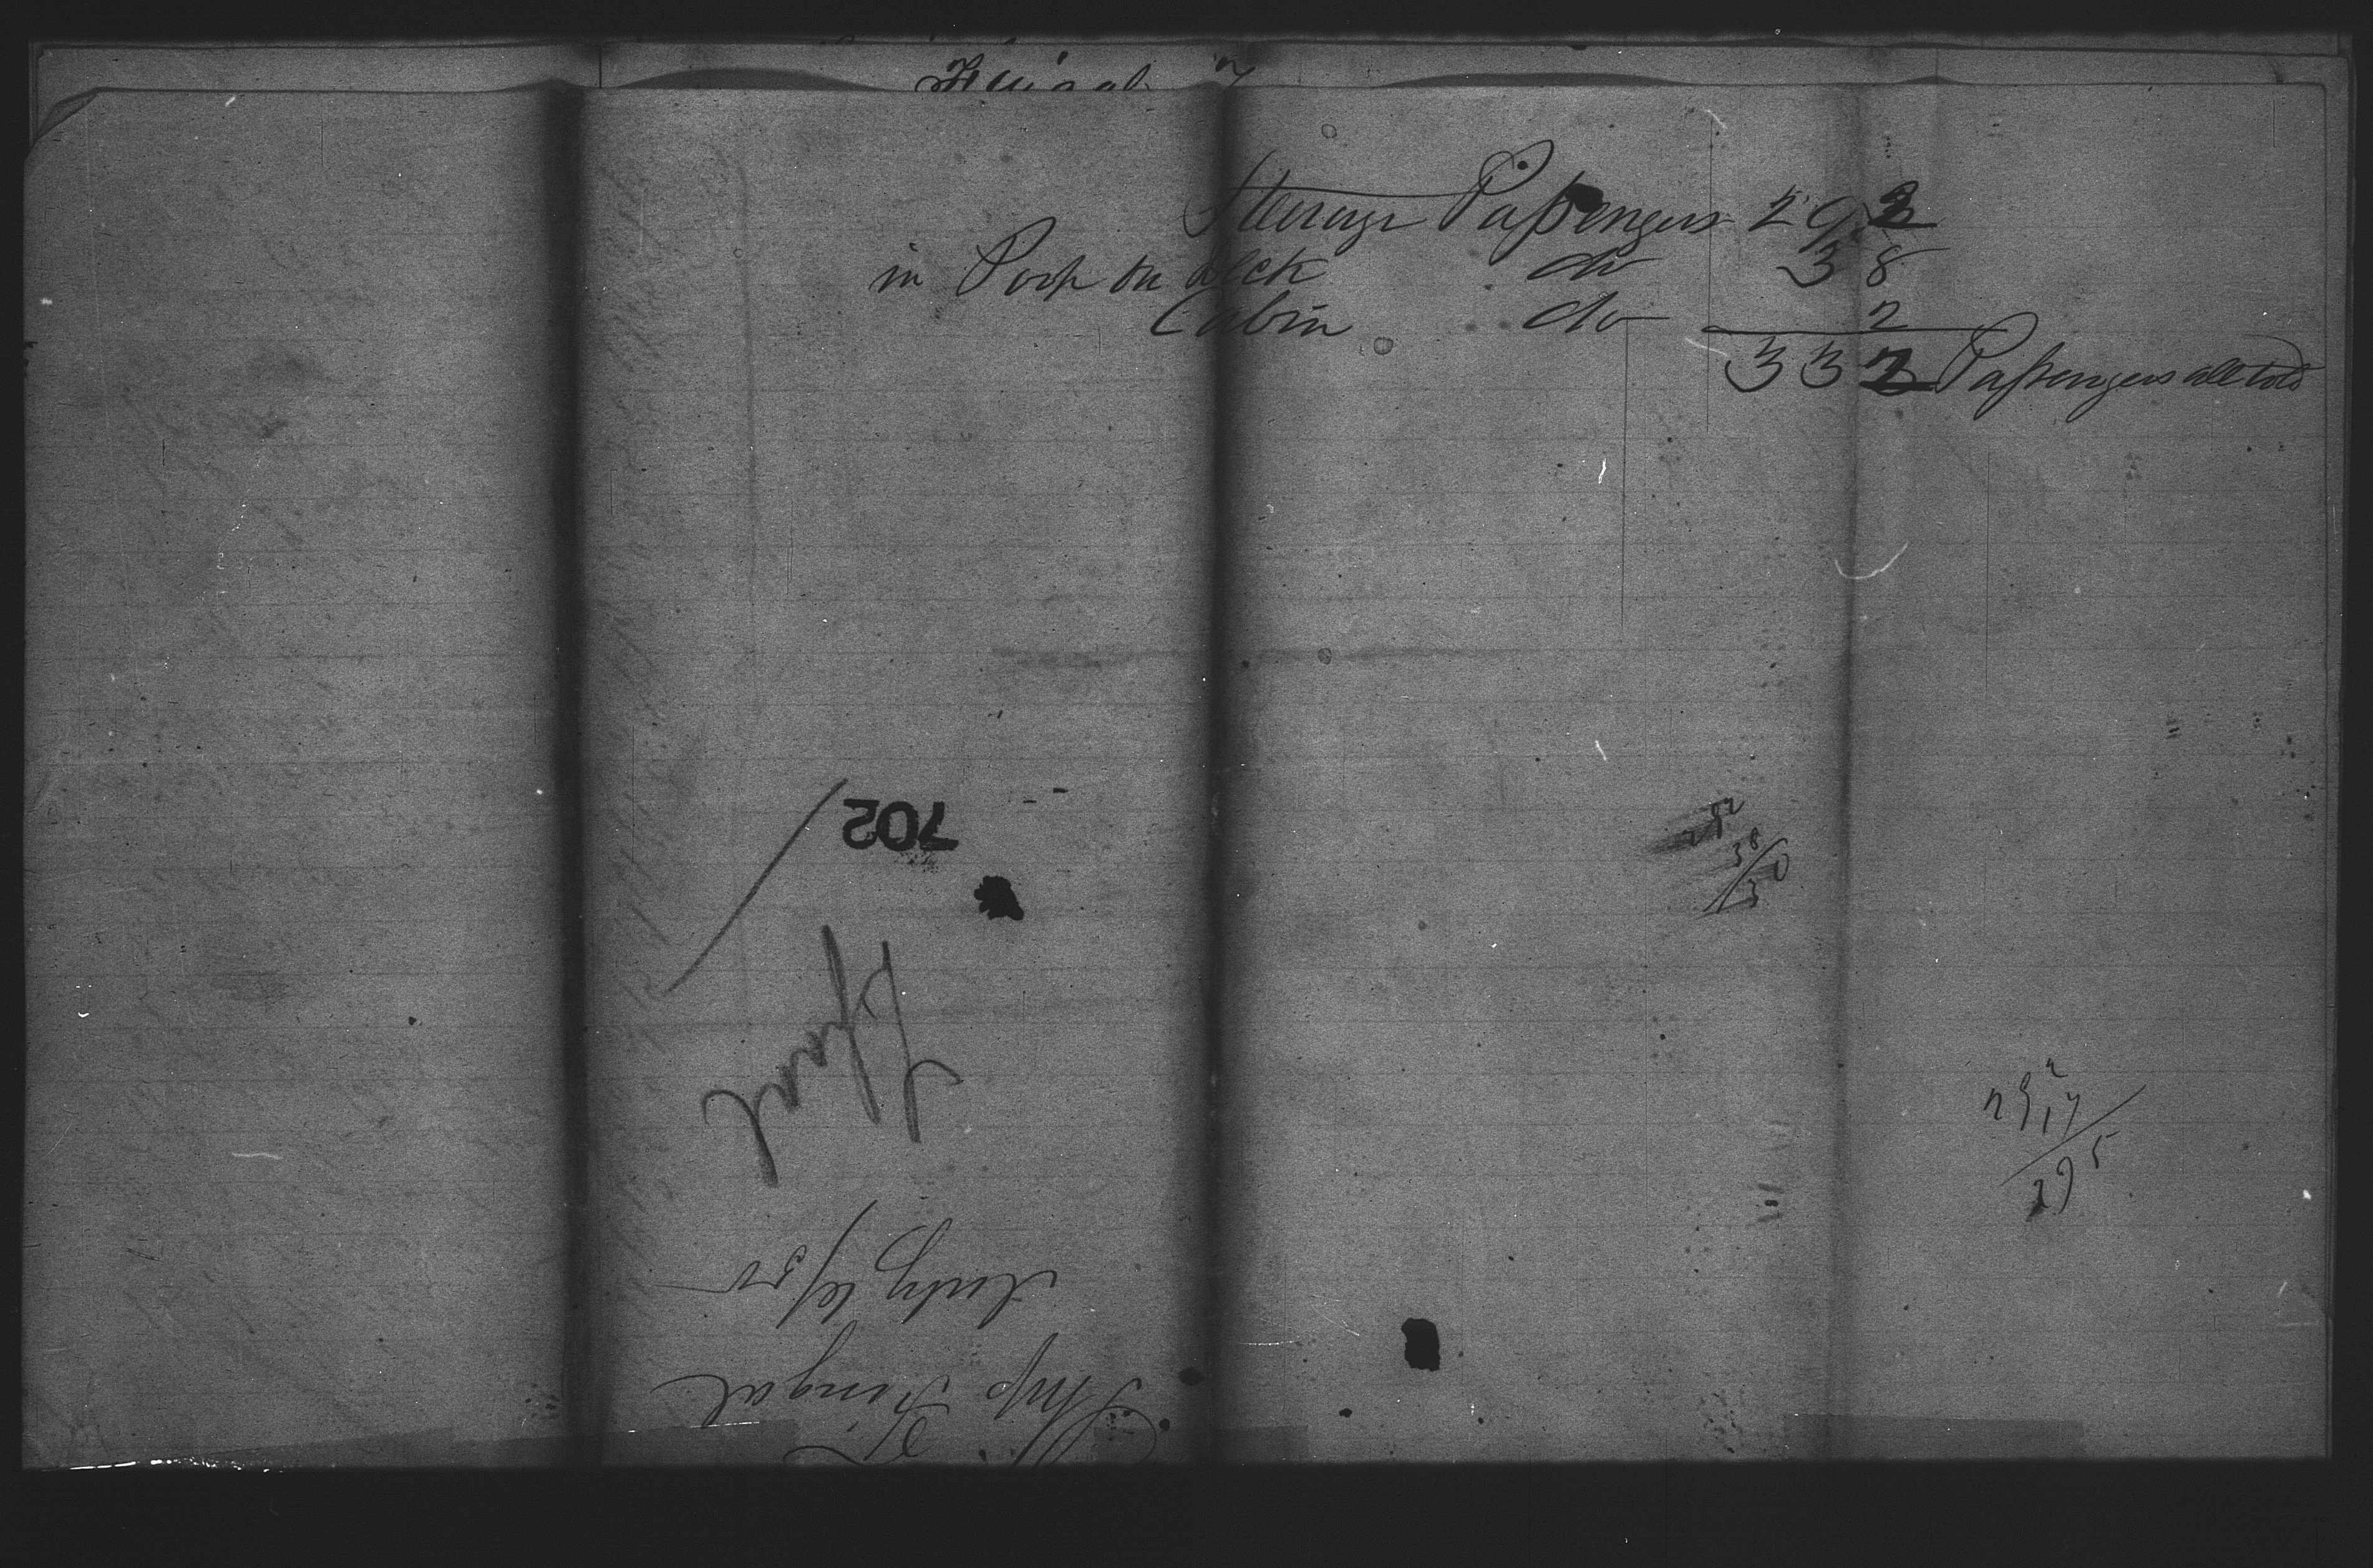 Steerage Passengers 292
in Poop on deck do 38
Cabin do 2
332 Passengers all told
292
38
330
702
292
17
295
July 6/50
Ship Fingal